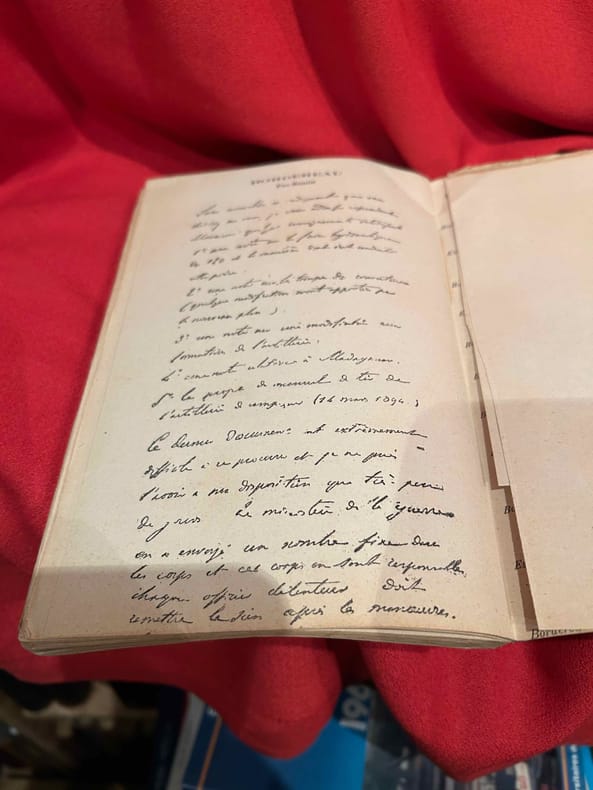 Sans nouvelles m'indiquant que vous
désirez me voir, je vous adresse cependant
Monsieur quelques renseignements intéressants
1° une note sur le frein hydraulique
du 120 et la manière dont s'est conduite
cette pièce.
2° une note sur les troupes de couverture
(quelques modifications seront apportées par
le nouveau plan.)
3° une note sur une modification aux
formations de l'artillerie:
4° une note relative à Madagascar.
5° le projet de manuel de tir de
l'artillerie de campagne (14 mars 1894.)
Ce dernier document est extrêmement
difficile à se procurer et je ne puis
l'avoir à ma disposition que très peu
de jours. Le ministère de la guerre
en a envoyé un nombre fixe dans
les corps et ces corps en sont responsables,
chaque officier détenteur doit
remettre le sien après les manœuvres.
Bordereau
196